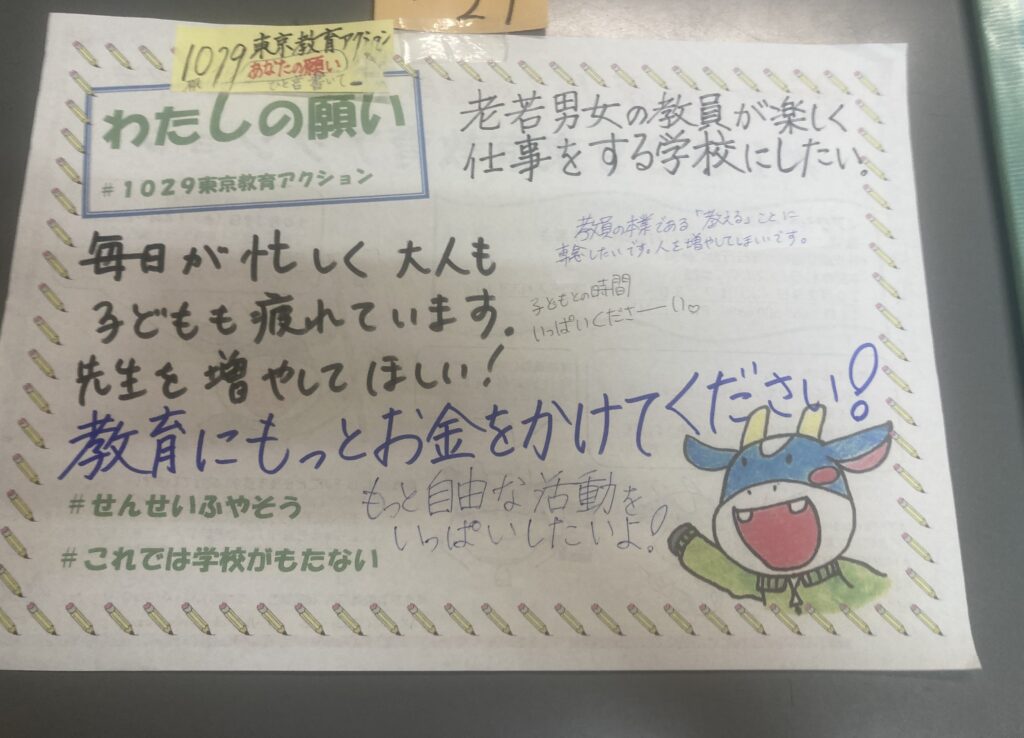 27
1029 東京教育アクション
あなたの願い
ひと言書いて
わたしの願い
#1029東京教育アクション
老若男女の教員が楽しく
仕事をする学校にしたい!
教員の本業である「教える」ことに
専念したいです。人を増やしてほしいです。
毎日が忙しく大人も
子どもも疲れています。
先生を増やしてほしい!
子どもとの時間
いっぱいくださーい♡
教育にもっとお金をかけてください!
#せんせいふやそう
#これでは学校がもたない
もっと自由な活動を
いっぱいしたいよ!